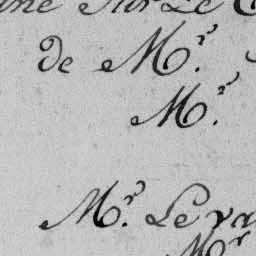 Sur Le
de M.r
M.r
M.r Le
M.r